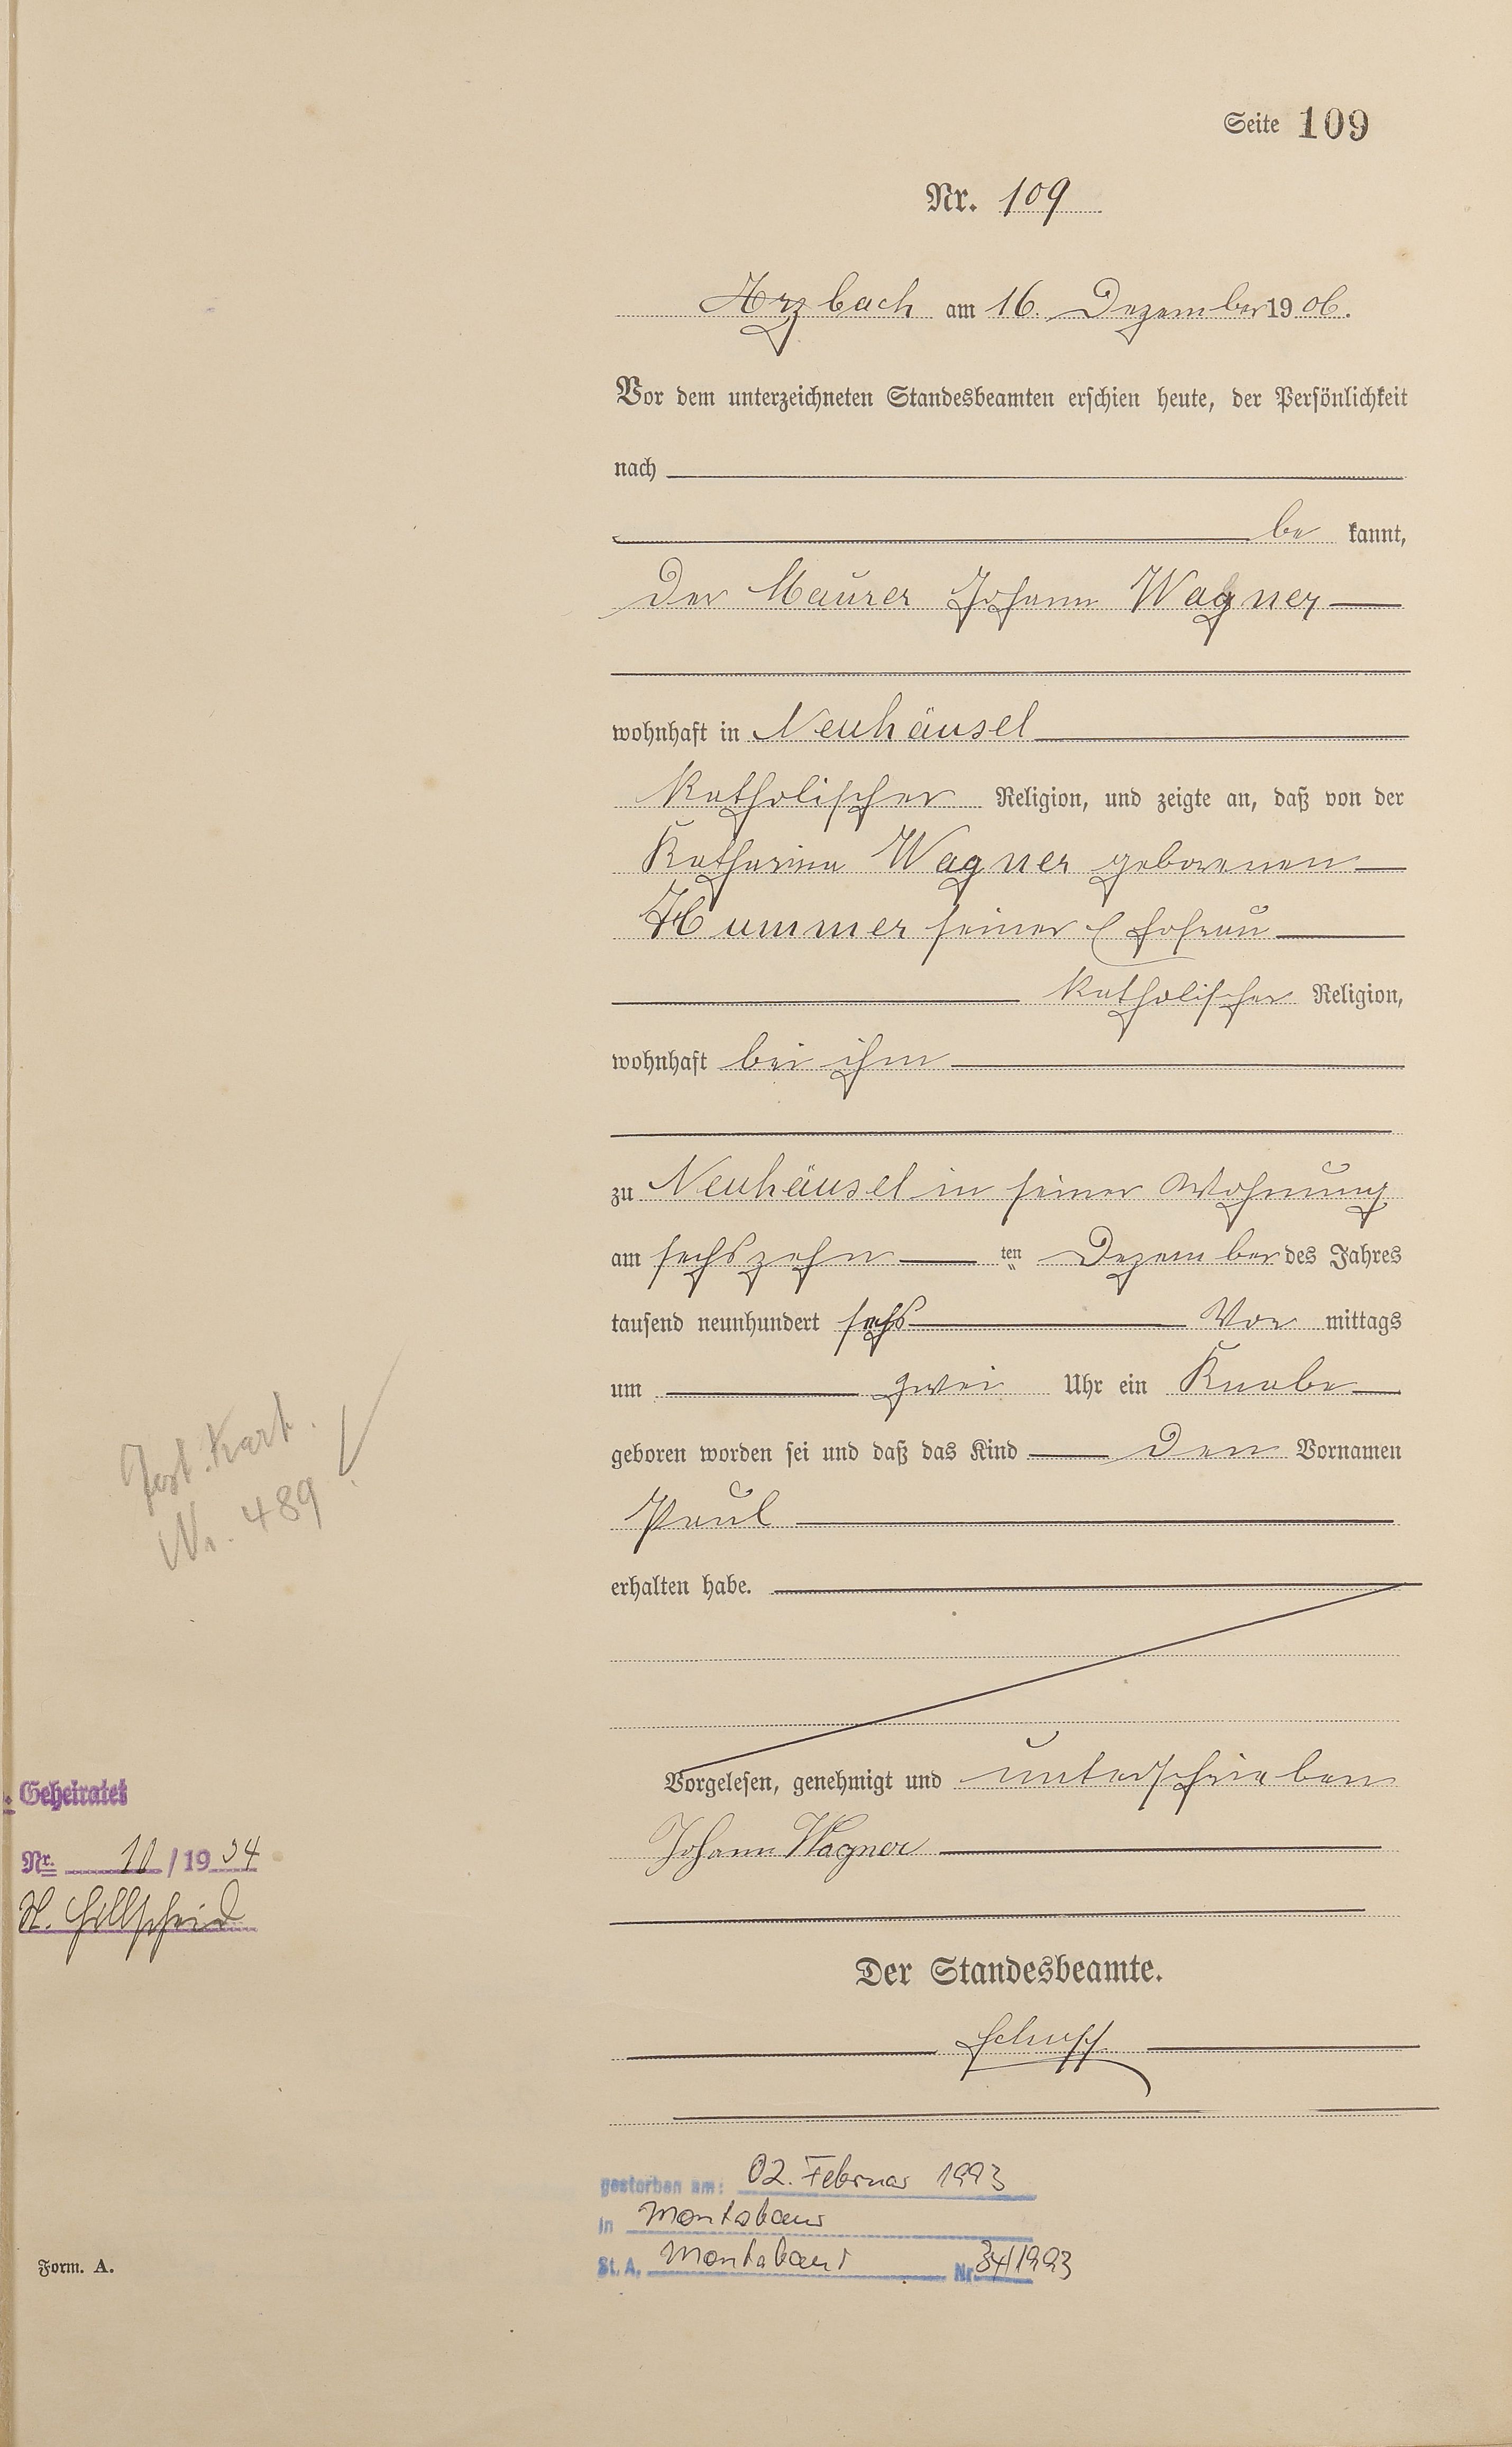 Seite 109
Nr. 109
Arzbach am 16. Dezember 1906.
Vor dem unterzeichneten Standesbeamten erschien heute, der Persönlichkeit
nach
be kannt,
Der Maurer Johann Wagner
wohnhaft in Neuhäusel
Katholischer Religion, und zeigte an, daß von der
Katharina Wagner geborenen
Hummer seiner Ehefrau
Katholischer Religion,
wohnhaft bei ihm
zu Neuhäusel in seiner Wohnung
am sechszehn ten Dezember des Jahres
tausend neunhundert sechs Vor mittags
um zwei Uhr ein Knabe
geboren worden sei und daß das Kind den Vornamen
Paul
erhalten habe.
Vorgelesen, genehmigt und unterschrieben
Johann Wagner
Der Standesbeamte.
Schupp
gestorben am: 02. Februar 1993
in Montabaur
St. A. Montabaur Nr. 34/1993
Kart.
Nr. 489
Geheiratet
Nr. 10/1934
St. Hillscheid
Form. A.